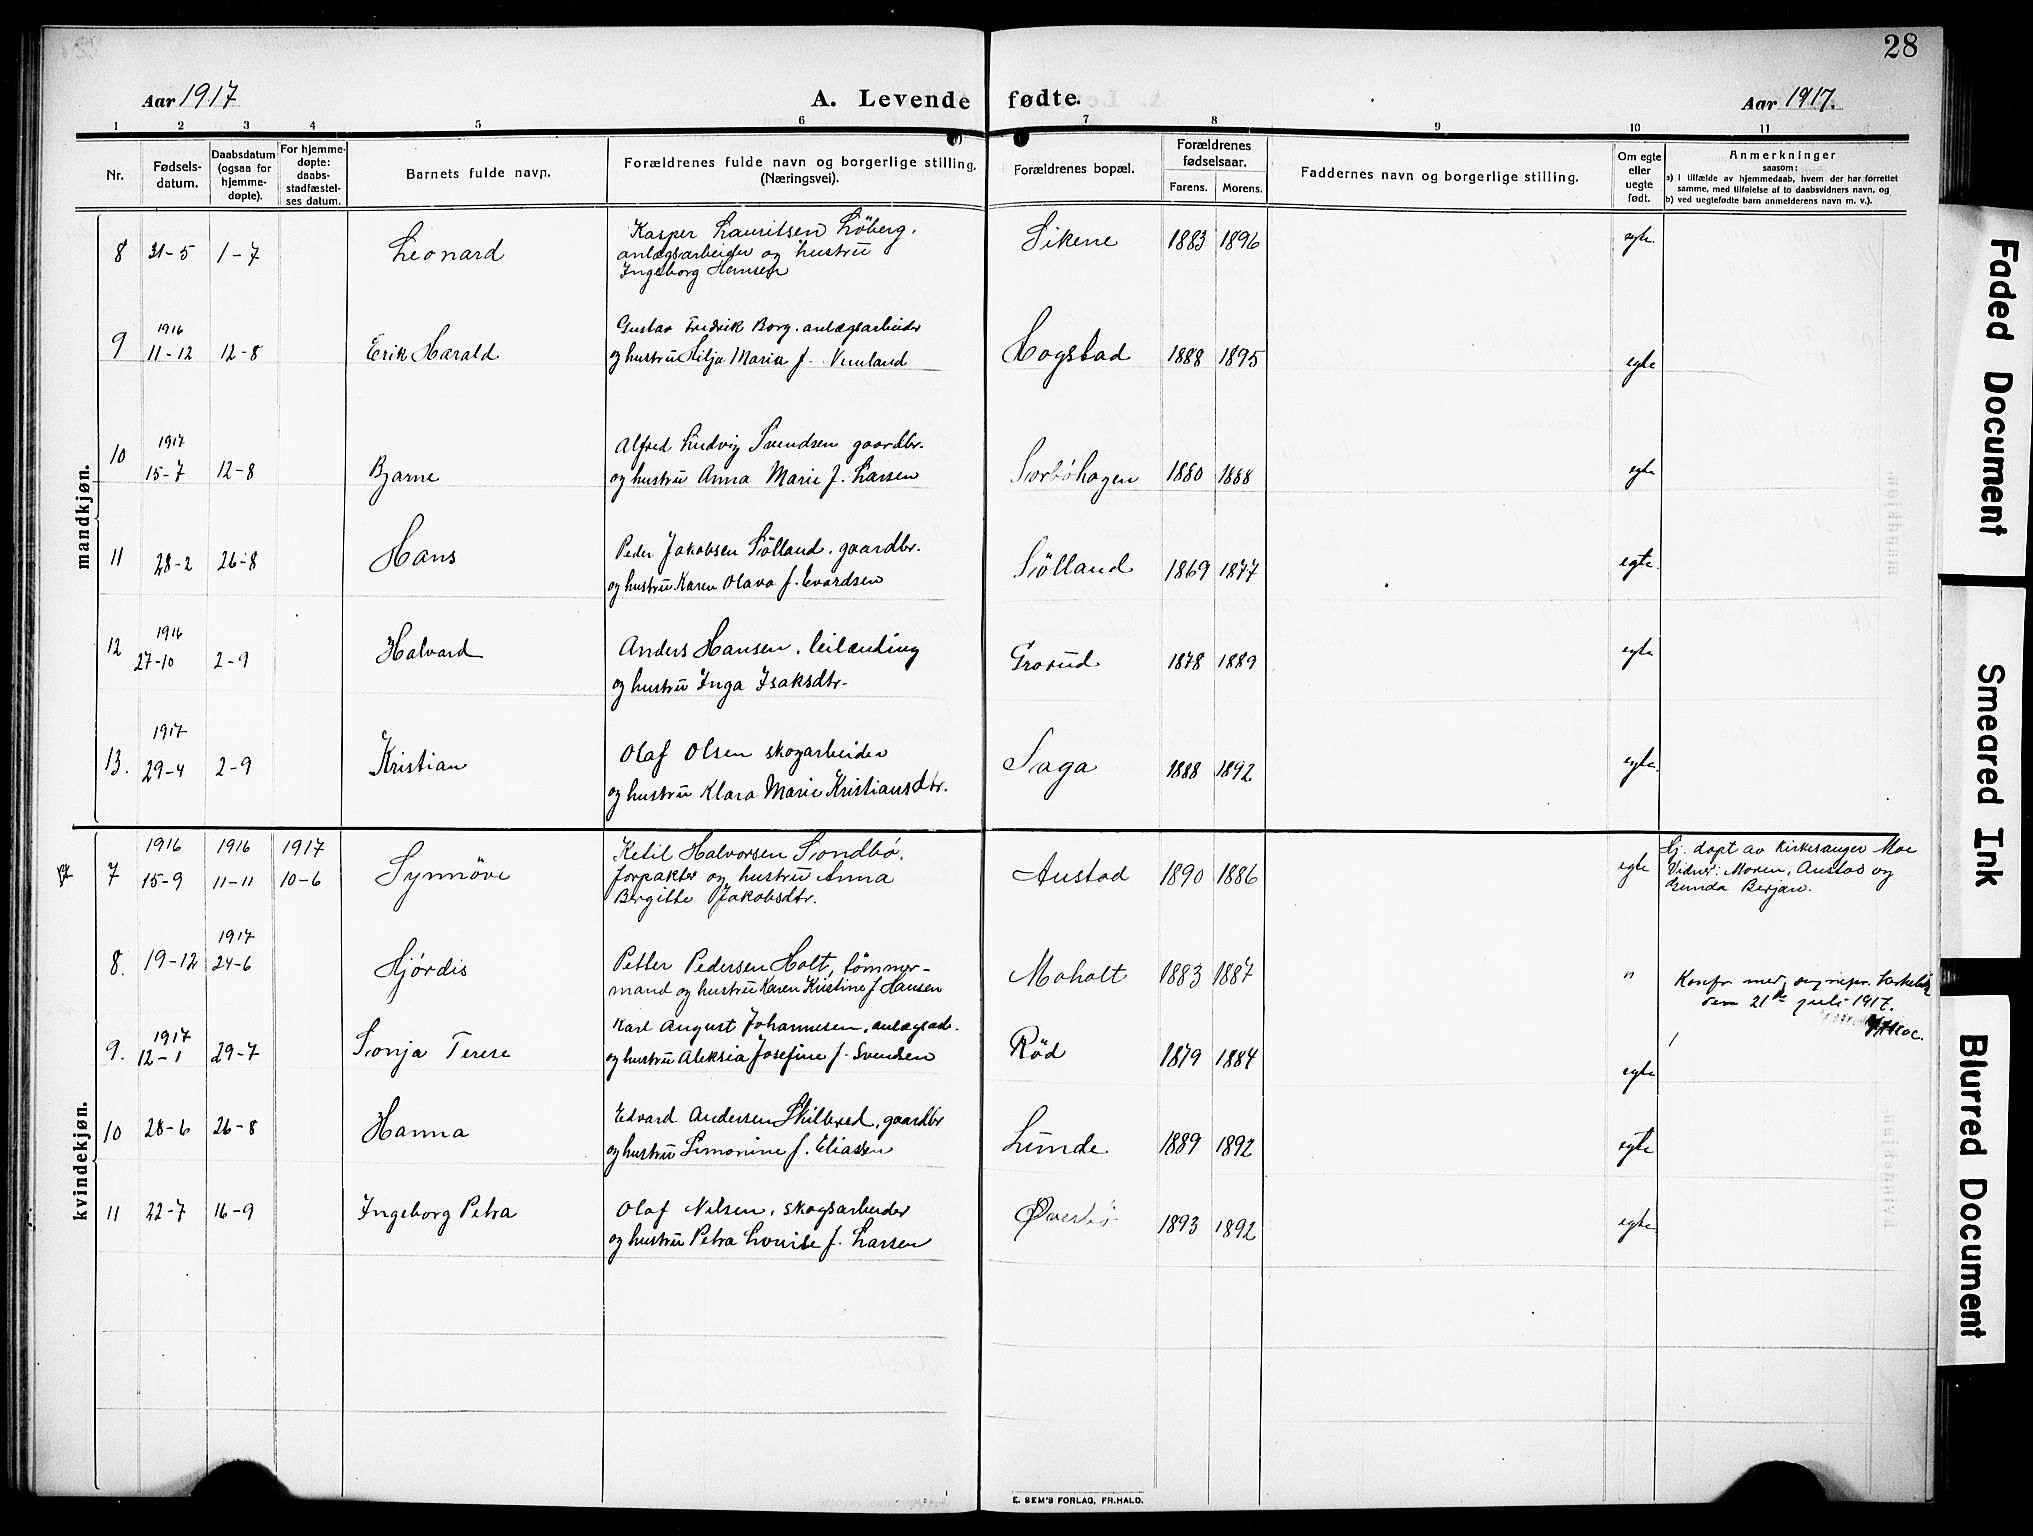 28
Aar 1917 A. Levende fødte. Aar 1917.
1 2 3 4 5 6 7 8 9 10 11
Nr. Fødsels-datum. Daabsdatum (ogsaa for hjemme-døpte). For hjemme-døpte: daabs-stadfæstel-ses datum. Barnets fulde navn. Forældrenes fulde navn og borgerlige stilling. (Næringsvei). Forældrenes bopæl. Forældrenes fødselsaar. Farens. Morens. Faddernes navn og borgerlige stilling. Om egte eller uegte født. Anmerkninger saasom: a) i tilfælde av hjemmedaab, hvem der har forrettet samme, med tilføielse af to daabsvidners navn, og b) ved uegtefødte barn anmelderens navn m. v.).
mandkjøn.
8 31-5 1-7 Leonard Kasper Lauritsen Löberg, Sikene 1883 1896 egte.
anlægsarbeider og hustru
Ingeborg Hansen
9 1916 11-12 12-8 Erik Harald Gustav Fredrik Borg. anlægsarbeider Hogstad 1888 1895 egte
og hustru Hilja Maria f.
10 1917 15-7 12-8 Bjarne Alfred Ludvig Svendsen gaardbr. Sorbøhagen 1880 1888 egte
og hustru Anna Marie f. Larsen
11 28-2 26-8 Hans Peder Jakobsen Sölland. gaardbr. Sölland 1869 1877 egte.
og hustru Karen Olava f. Evardsen
12 1916 27-10 2-9 Halvard Anders Hansen, leilænding Grorud 1878 1889 egte
og hustru Inga Isaksdtr.
13. 1917 29-4 2-9 Kristian Olaf Olsen skogarbeider Saga 1888 1892 egte.
og hustru Klara Marie Kristiansdtr.
kvindekjøn.
7 1916 15-9 1916 11-11 1917 10-6 Synnöve Ketil Halvorsen Sondbö, Austad 1890 1886 egte Hj. døpt av Kirkesanger Moe
forpakter og hustru Anna Vidner: Moren, Austad og
Bergitte Jakobsdtr. Gunda Berjan.
8. 19-12 1917 24-6 Hjördis Petter Pedersen Holt, tömmer- Moholt 1883 1887 " Konfr. med
mand og hustru Karen Kristine f Hansen den 21de juli 1917.
9. 1917 12-1 29-7 Sonja Terese Karl August Johannesen, anlægsarb. Röd 1879 1884 egte
og hustru Aleksia Josefine f. Svendsen
10 28-6 26-8 Hanna Edvard Andersen Skilbred, gaardbr Lunde 1889 1892 egte
og hustru Simonine f. Eliassen
11 22-7 16-9 Ingeborg Petra Olaf Nilsen, skogsarbeider Øverbö 1893 1892 egte
og hustru Petra Lovise f. Larsen
E. SEM'S FORLAG, FR.HALD.
Faded Document
Smeared Ink
Blurred Document